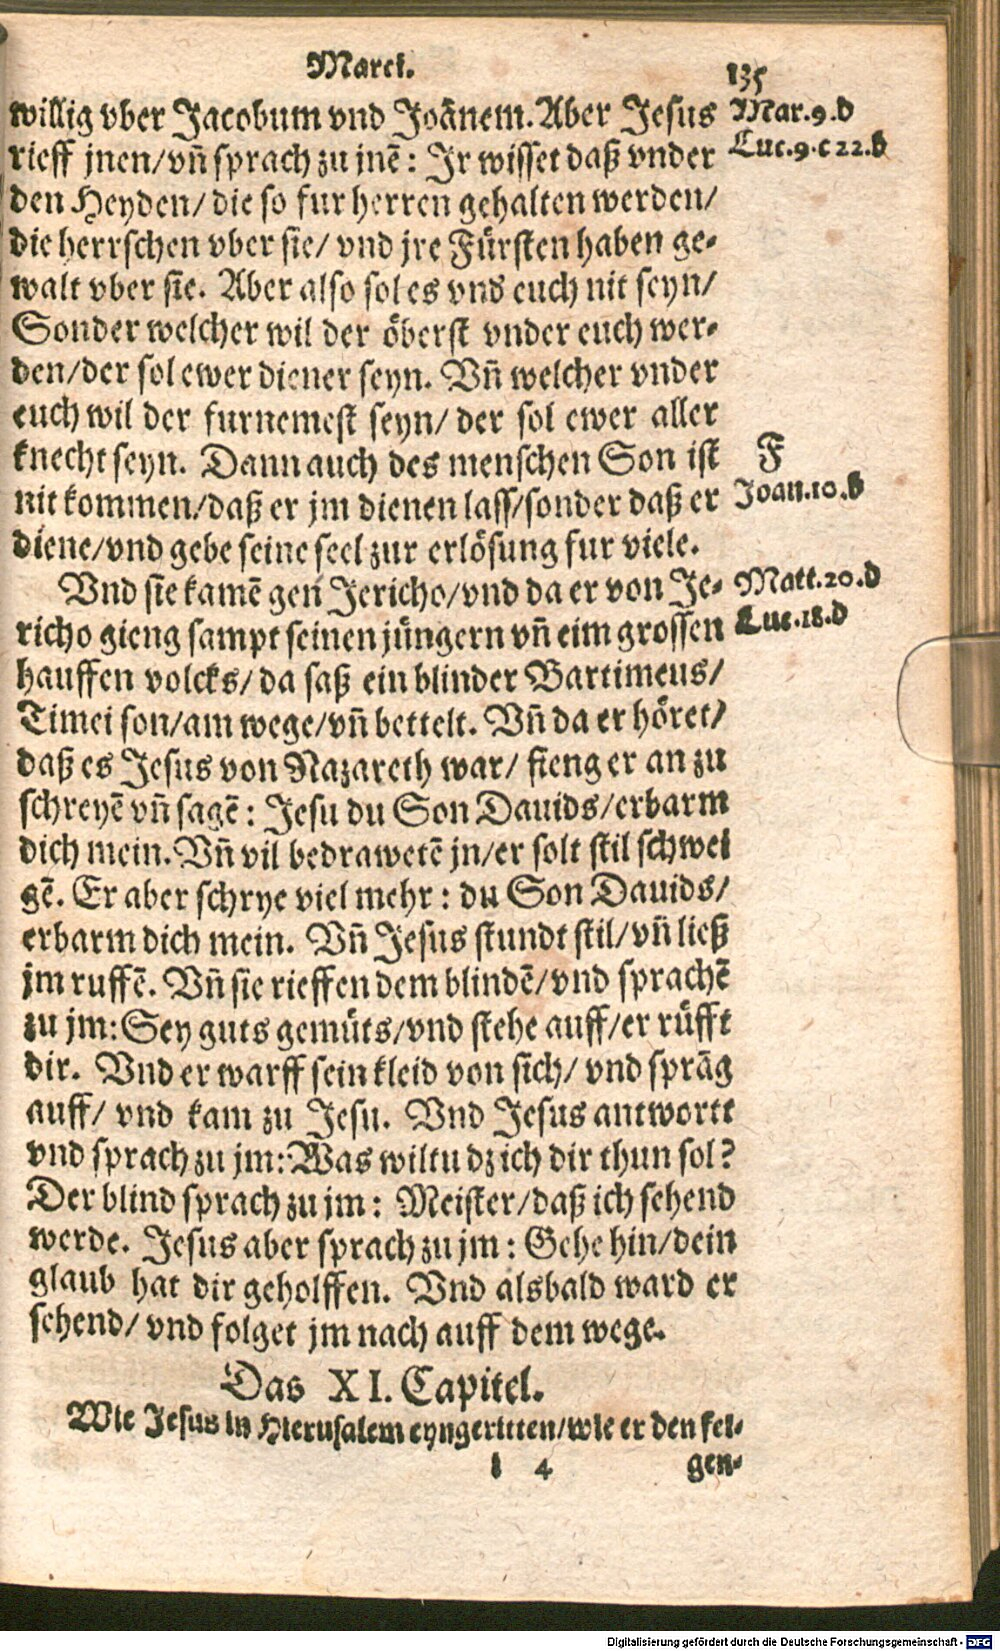 Marci. 135
willig vber Jacobum vnd Joānem. Aber Jesus
rieff jnen/vñ sprach zu jnē: Ir wisset daß vnder
den Heyden/ die so fur herren gehalten werden/
die herrschen vber sie/ vnd jre Fürsten haben ge-
walt vber sie. Aber also sol es vnd euch nit seyn/
Sonder welcher wil der öberst vnder euch wer-
den/der sol ewer diener seyn. Vñ welcher vnder
euch wil der furnemest seyn/ der sol ewer aller
knecht seyn. Dann auch des menschen Son ist
nit kommen/daß er jm dienen lass/sonder daß er
diene/vnd gebe seine seel zur erlösung fur viele.
Vnd sie kamē gen Jericho/vnd da er von Je-
richo gieng sampt seinen jüngern vñ eim grossen
hauffen volcks/ da saß ein blinder Bartimeus/
Timei son/am wege/vñ bettelt. Vñ da er höret/
daß es Jesus von Nazareth war/ fieng er an zu
schreyē vñ sagē: Jesu du Son Dauids/erbarm
dich mein. Vñ vil bedrawetē jn/er solt stil schwei
gē. Er aber schrye viel mehr: du Son Dauids/
erbarm dich mein. Vñ Jesus stundt stil/vñ ließ
jm ruffē. Vñ sie rieffen dem blindē/vnd sprachē
zu jm: Sey guts gemüts/vnd stehe auff/er rüfft
dir. Vnd er warff sein kleid von sich/ vnd sprāg
auff/ vnd kam zu Jesu. Vnd Jesus antwortt
vnd sprach zu jm: Was wiltu dz ich dir thun sol?
Der blind sprach zu jm: Meister/daß ich sehend
werde. Jesus aber sprach zu jm: Gehe hin/dein
glaub hat dir geholffen. Vnd alsbald ward er
sehend/ vnd folget jm nach auff dem wege.
Das XI. Capitel.
Wie Jesus in Hierusalem eyngeritten/wie er den fei-
l 4 gen-
Mar.9.d
Luc.9.c 22.b
F
Joan.10.b
Matt.20.d
Luc.18.d
Digitalisierung gefördert durch die Deutsche Forschungsgemeinschaft - DFG